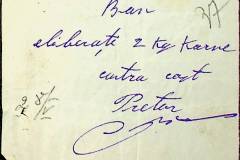 Bon
37
eliberați 2 Kg Karne
contra cost
Pretor